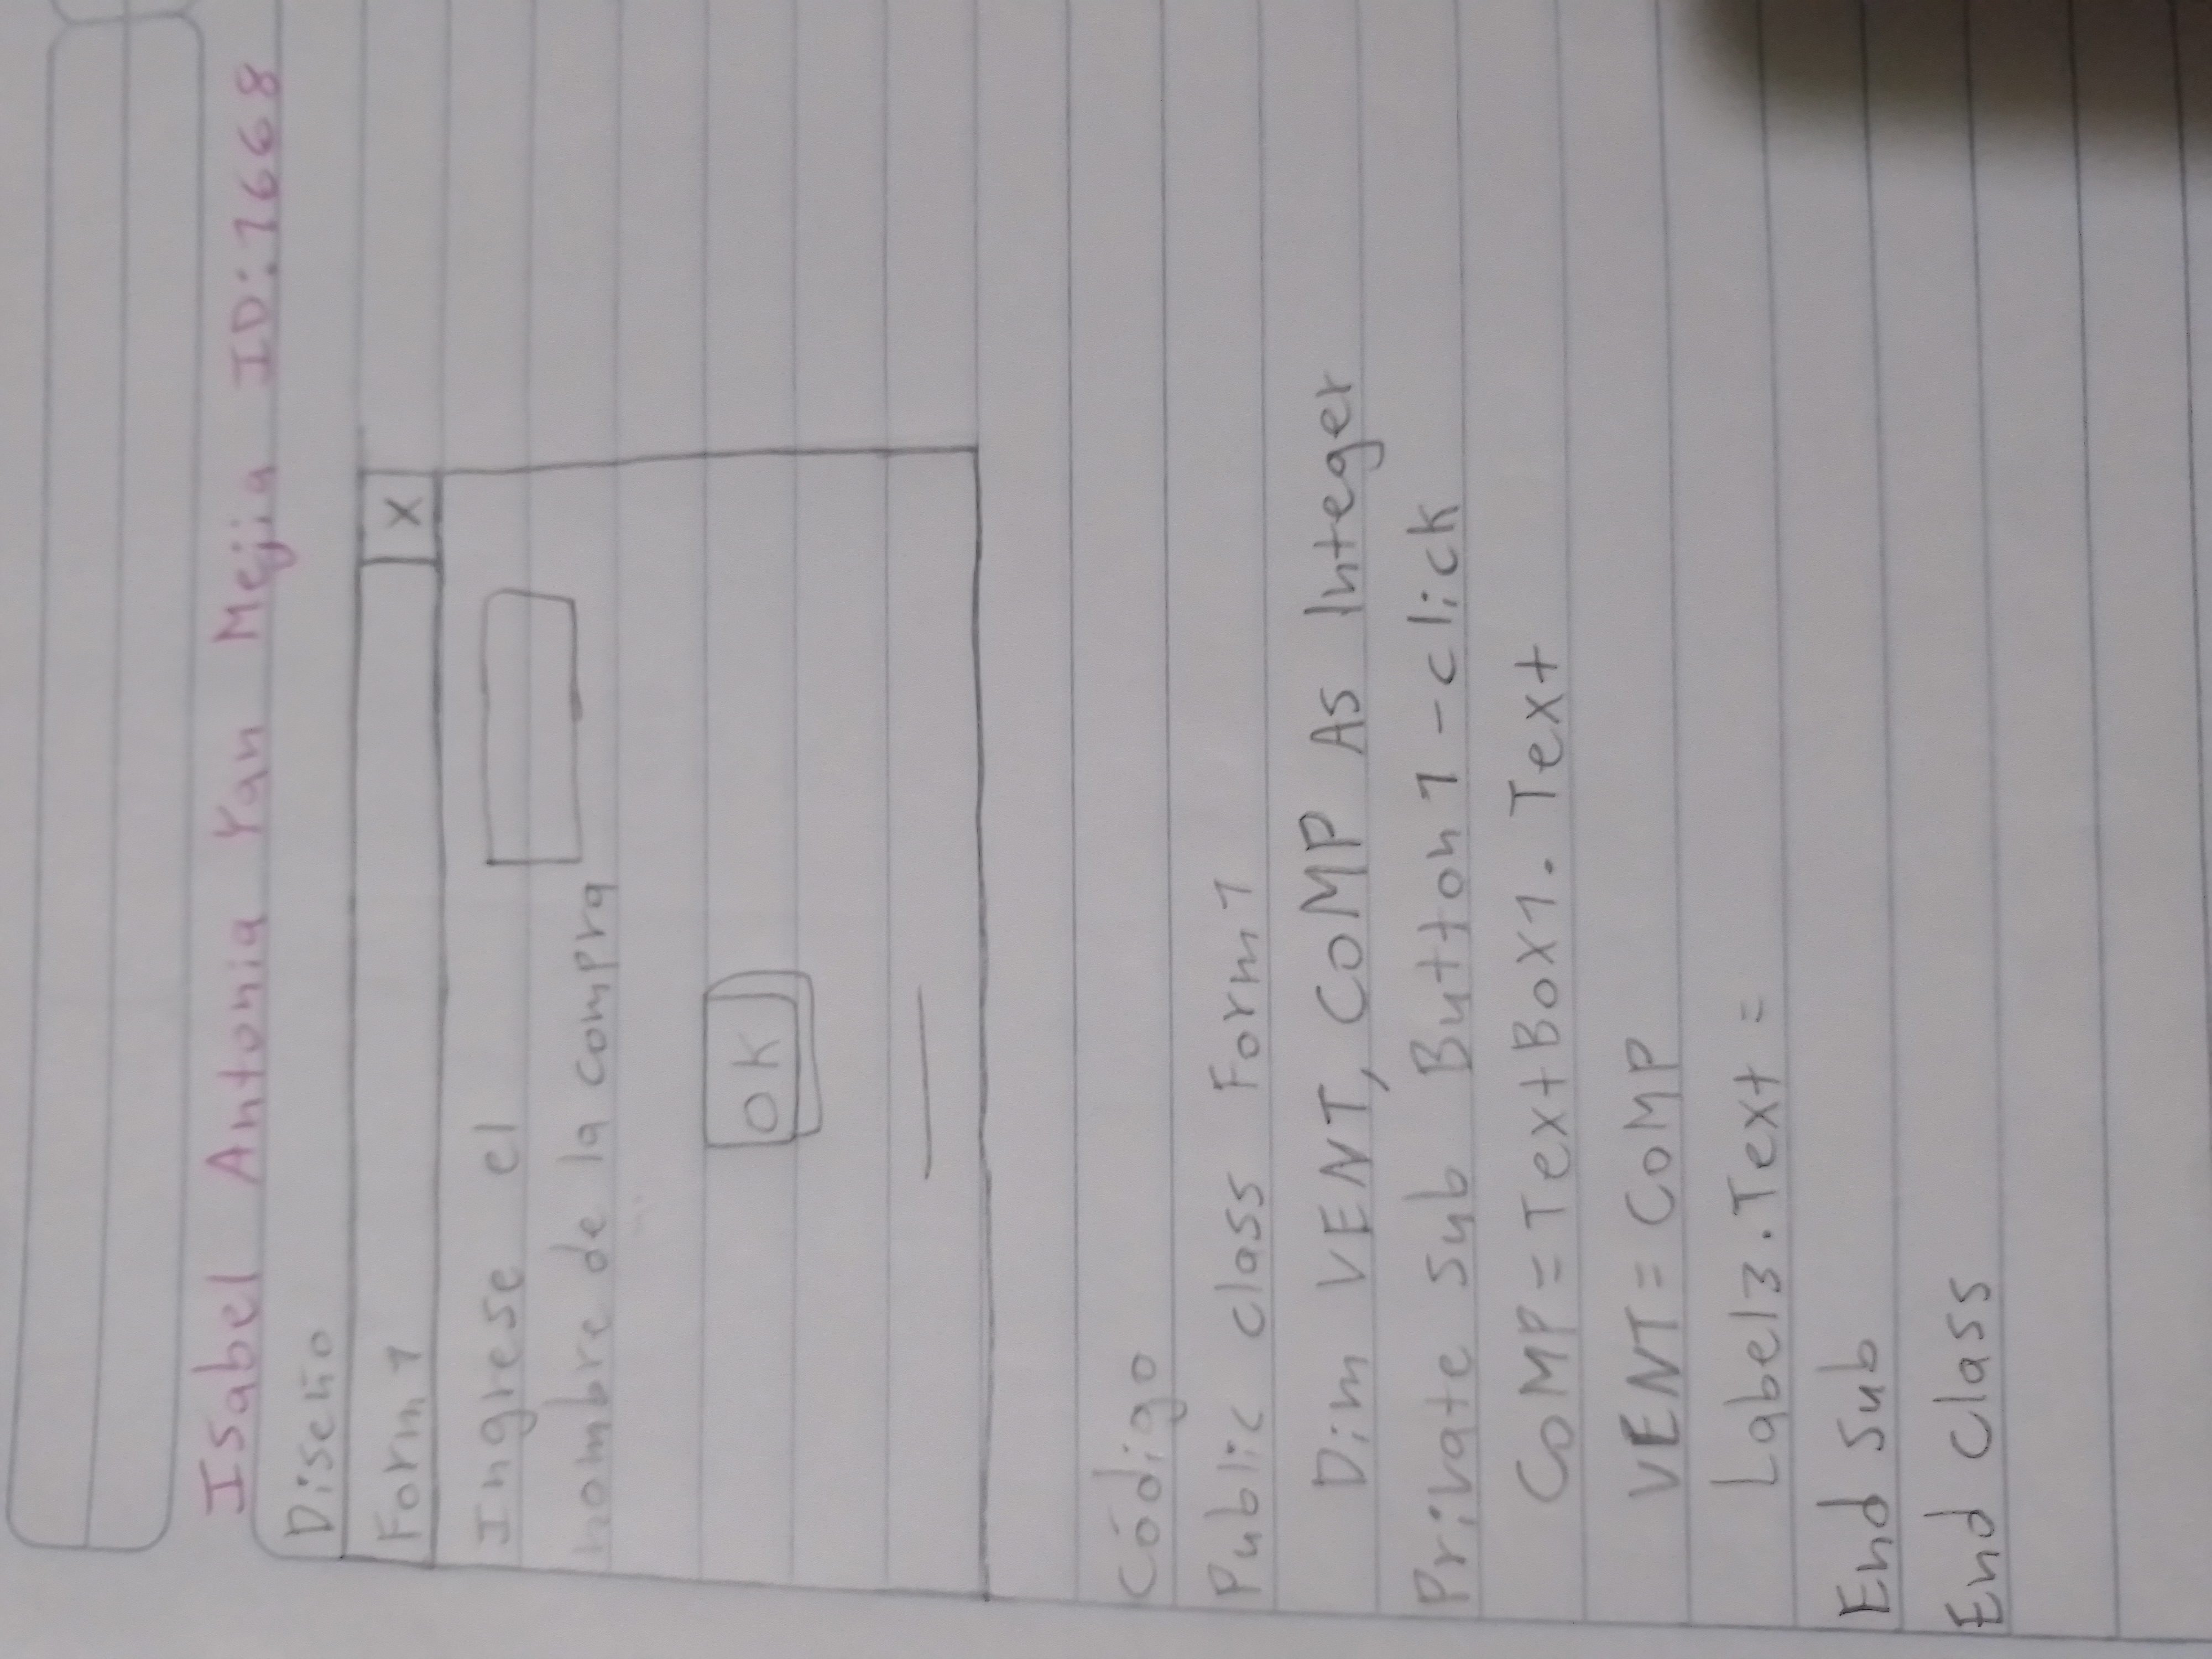 Isabel Antonia Yan Mejia ID:1668
Diseño
Form 1 X
Ingrese el
nombre de la compra
OK
Código
Public class Form1
Dim VENT, COMP As Integer
Private Sub Button1-click
COMP = TextBox1.Text
VENT = COMP
Label3.Text =
End Sub
End Class